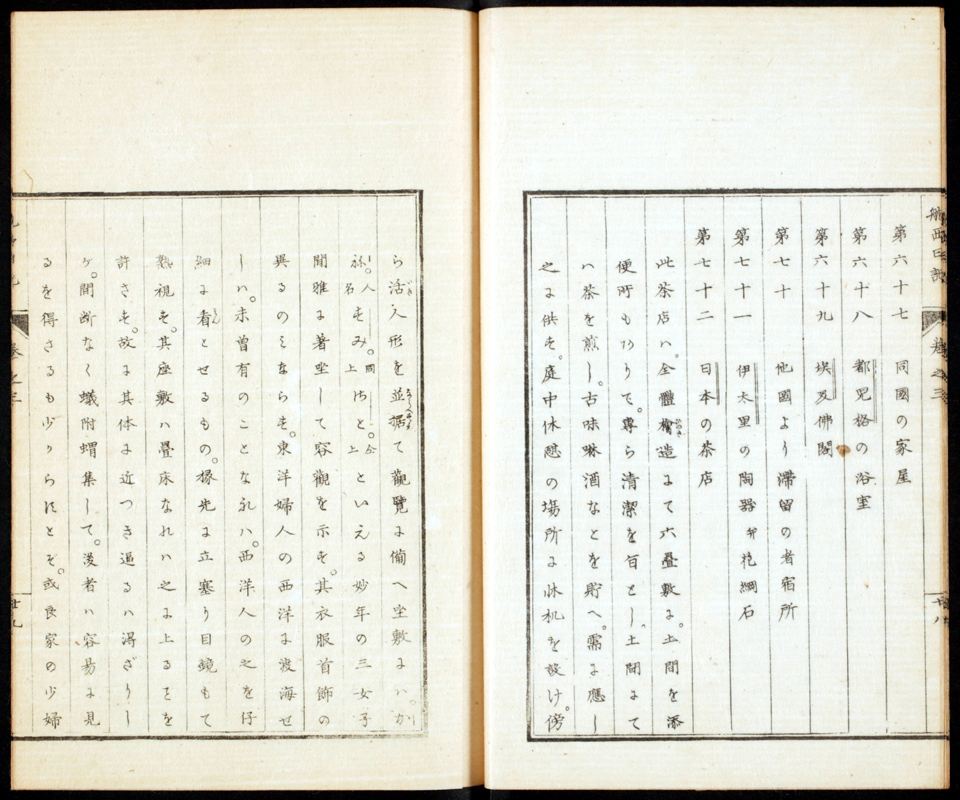 航西日記
卷之三
廿八
第六十七　同國の家屋
第六十八　都児格の浴室
第六十九　埃及佛閣
第七十　他國より滞留の者宿所
第七十一　伊太里の陶器并花綱石
第七十二　日本の茶店
此茶店ハ。全體檜造にて六疊敷に。土間を添
便所もありて。專ら清潔を旨とし。土間にて
ハ茶を煎し。古味噺酒なとを貯へ。需に應し
之に供す。庭中休憩の場所に牀机を設け。傍
ら活人形を並据て觀覽に備へ坐敷にハ。かね。すみ。さと。といえる妙年の三女子
閒雅に著坐して容觀を示す。其衣服首飾の
異るのミならす。東洋婦人の西洋に渡海せ
しハ。未曾有のことなれハ。西洋人の之を仔
細に看とせるもの。椽先に立塞り目鏡もて
熟視す。其座敷ハ疊床なれハ之に上ることを
許さす。故に其体に近つき逼るハ得ざりし
ゲ。間断なく蟻附蝟集して。後者ハ容易に見
るを得さるも少からすとぞ。或良家の少婦
卷之三
廿九